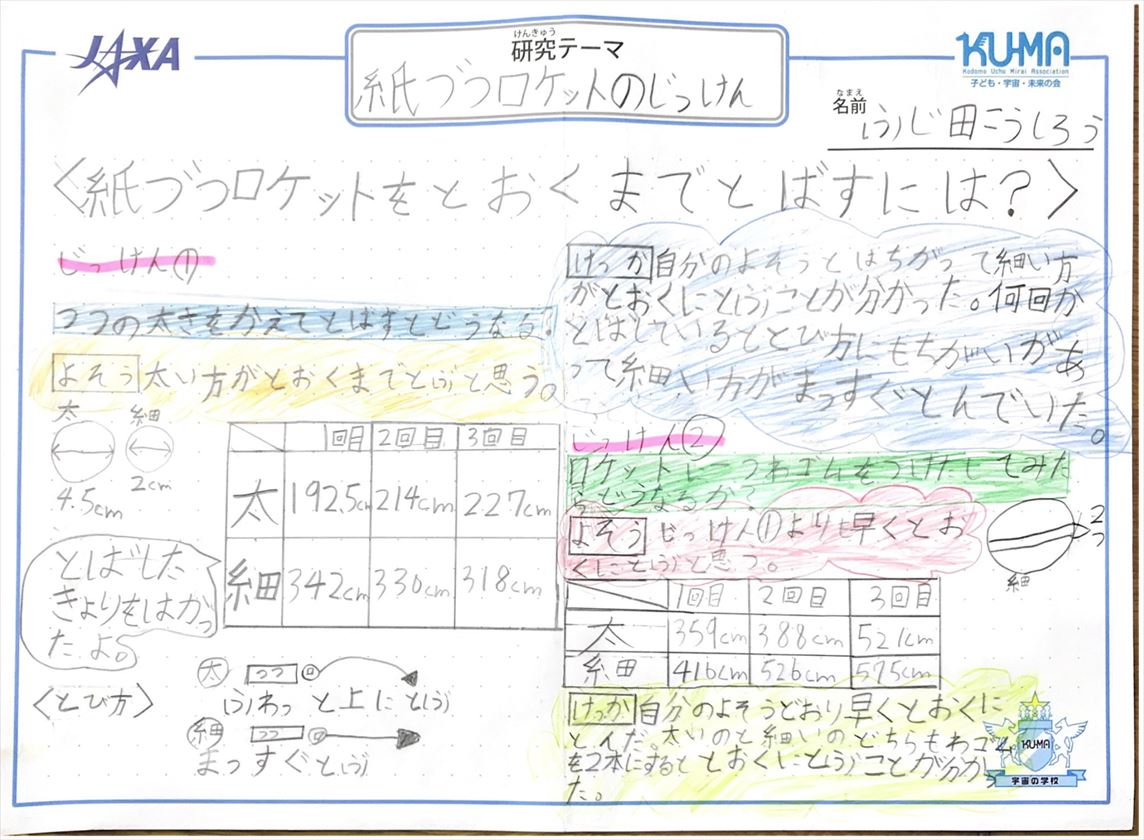 JAXA
けんきゅう
研究テーマ
紙づつロケットのじっけん
KU-MA
Kodomo Uchu Mirai Association
子ども・宇宙・未来の会
なまえ
名前
ふじ田こうしろう
〈紙づつロケットをとおくまでとばすには?〉
じっけん①
つつの太さをかえてとばすとどうなる?
よそう 太い方がとおくまでとぶと思う。
太 細
4.5cm 2cm
1回目 2回目 3回目
太 192.5cm 214cm 227cm
細 342cm 330cm 318cm
とばした
きょりをはかっ
たよ。
〈とび方〉
太 つつ 回
ふわっと上にとぶ
細 つつ 回
まっすぐとぶ
けっか 自分のよそうとはちがって細い方
がとおくにとぶことが分かった。何回か
とばしているととび方にもちがいがあ
って細い方がまっすぐとんでいた。
じっけん②
ロケットに一つわゴムをつけたしてみた
らどうなるか?
よそう じっけん①よりも早くとお
くにとぶと思う。
2つ
細
1回目 2回目 3回目
太 359cm 388cm 521cm
細 416cm 526cm 575cm
けっか 自分のよそうどおり早くとおくに
とんだ。太いのと細いのどちらもわゴム
を2本にするととおくにとぶことが分かっ
た。
KU-MA
宇宙の学校